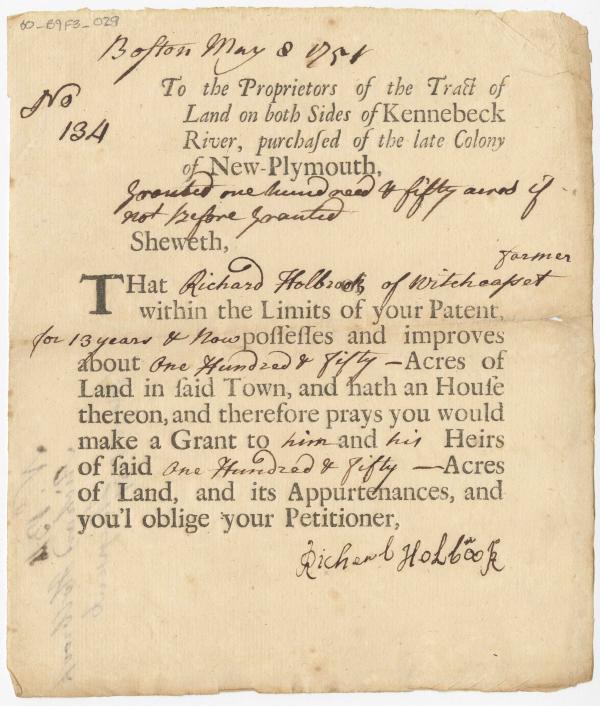 60_B9F3_029
Boſton May 8 1751
No
134
To the Proprietors of the Tract of
Land on both Sides of Kennebeck
River, purchaſed of the late Colony
of New-Plymouth,
Granted one hundreed & fifty acres if
not Before Granted
Sheweth,
farmer
THat Richard Holbrook of Witchcasset
within the Limits of your Patent,
for 13 years & Now poſſeſſes and improves
about One Hundred & fifty — Acres of
Land in ſaid Town, and hath an Houſe
thereon, and therefore prays you would
make a Grant to him and his Heirs
of ſaid One Hundred & fifty — Acres
of Land, and its Appurtenances, and
you'l oblige your Petitioner,
Holbrook